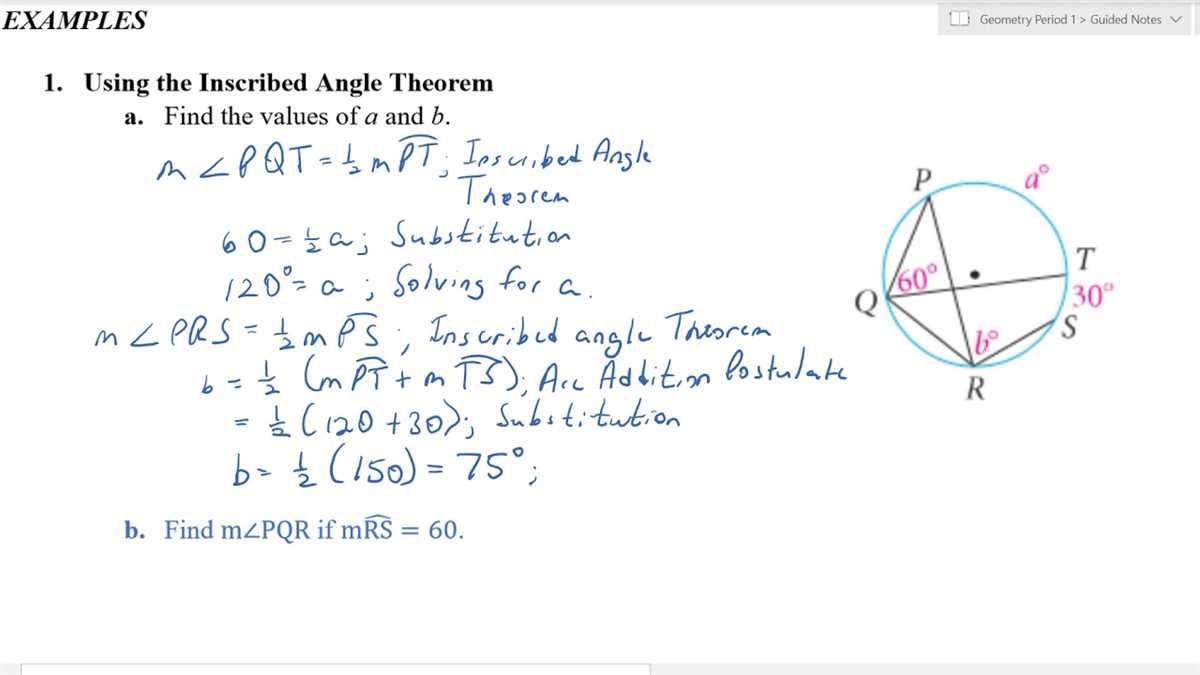 EXAMPLES
Geometry Period 1 > Guided Notes
1. Using the Inscribed Angle Theorem
a. Find the values of a and b.
m∠PQT = ½ m P͡T ; Inscribed Angle
Theorem
60 = ½ a ; Substitution
120° = a ; Solving for a.
m∠PRS = ½ m P͡S ; Inscribed angle Theorem
b = ½ (m P͡T + m T͡S) ; Arc Addition Postulate
= ½ (120 + 30) ; Substitution
b = ½ (150) = 75° ;
b. Find m∠PQR if mR͡S = 60.
P
a°
T
60°
30°
Q
S
b°
R